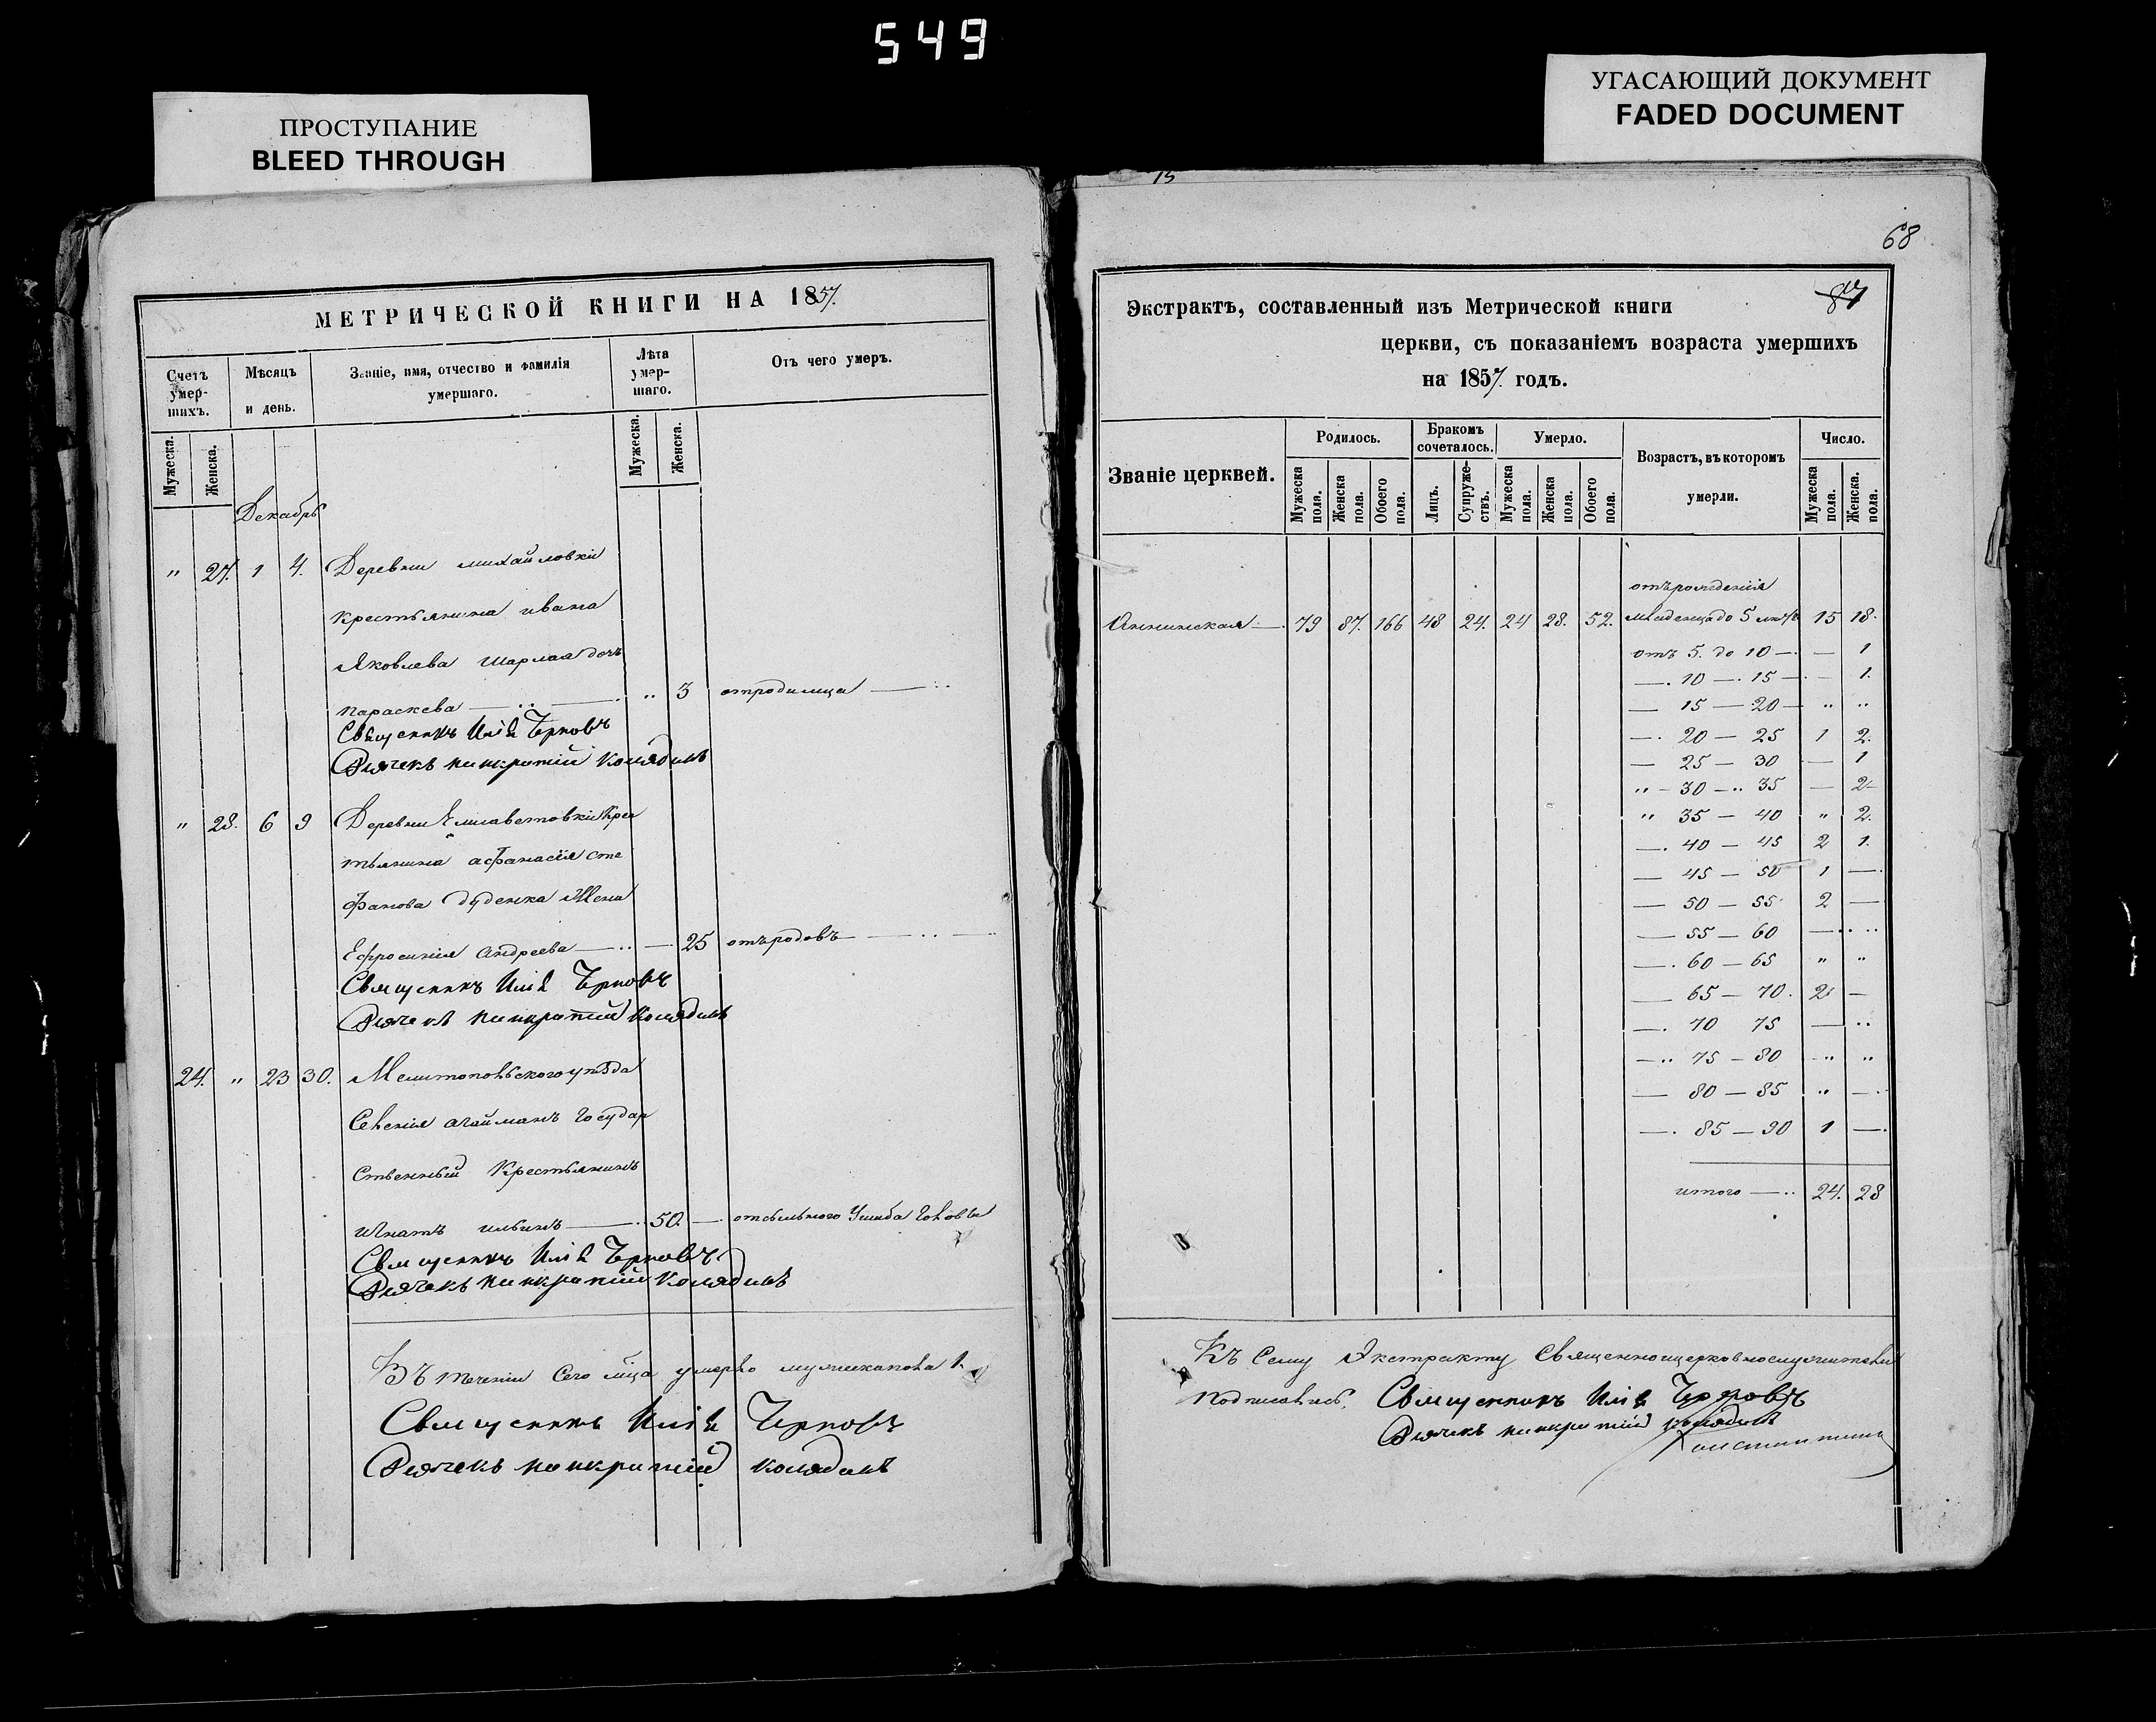 549
ПРОСТУПАНИЕ
BLEED THROUGH
УГАСАЮЩИЙ ДОКУМЕНТ
FADED DOCUMENT
МЕТРИЧЕСКОЙ КНИГИ НА 1857.
Счетъ умер-шихъ.
Мѣсяцъ и день.
Званіе, имя, отчество и фамилія умершаго.
Лѣта умер-шаго.
Отъ чего умеръ.
Мужеска. Женска. Мужеска. Женска.
Декабрь
" 27. 1 4. Деревни михайловки
крестьянина ивана
Яковлева Шарлая дочь
параскева — " 3 отродимца —
Священникъ Илія Черновъ
Дьячекъ панкратій Колядинъ
" 28. 6 9 Деревни Елисаветовки Крес
тьянина афанасія сте
фанова дуденка Жена
Ефросинія андреева — 25 отъродовъ —
Священникъ Илія Черновъ
Дьячекъ панкратій Колядинъ
24. " 23 30. Мелитопольского уѣзда
Селенія агайманъ государ
ственный Крестьянинъ
игнатъ ильинъ — 50. — отсильного Ушиба головы
Священникъ Илія Черновъ
Дьячекъ панкратій Колядинъ
Въ теченіи сего мца умерло
Священникъ Илія Черновъ
Дьячекъ панкратій колядинъ
15
68
87
Экстрактъ, составленный изъ Метрической книги
церкви, съ показаніемъ возраста умершихъ
на 1857. годъ.
Званіе церквей.
Родилось.
Бракомъ сочеталось.
Умерло.
Возрастъ, въ котором умерли.
Число.
Мужеска пола. Женска пола. Обоего пола. Лицъ. Супруже-ствъ. Мужеска пола. Женска пола. Обоего пола. Мужеска пола. Женска. пола.
отърожденія
Аннинская — 79 87. 166 48 24. 24 28. 52. младенца до 5 лѣтъ 15 18.
отъ 5. до 10 — — 1
—. 10 —. 15 — — 1.
— 15 — 20 — " "
—. 20 — 25 1 2.
— 25 — 30 — 1
" — 30 — " 35 — 2
" 35 — 40 " 2.
—. 40 — 45 2 1.
— 45 — 50 1 —
— 50 — 55 2 —
— 55 — 60 — "
—. 60 — 65 " "
— 65 — 70. 2 —
—. 70 75 — "
— " 75 — 80 " "
— 80 — 85 " —
—. 85 — 90 1 —.
итого — 24. 28
Къ сему Экстракту священноицерковнослужители
подписались. Священникъ Илія Черновъ
Дьячекъ панкратій колядинъ